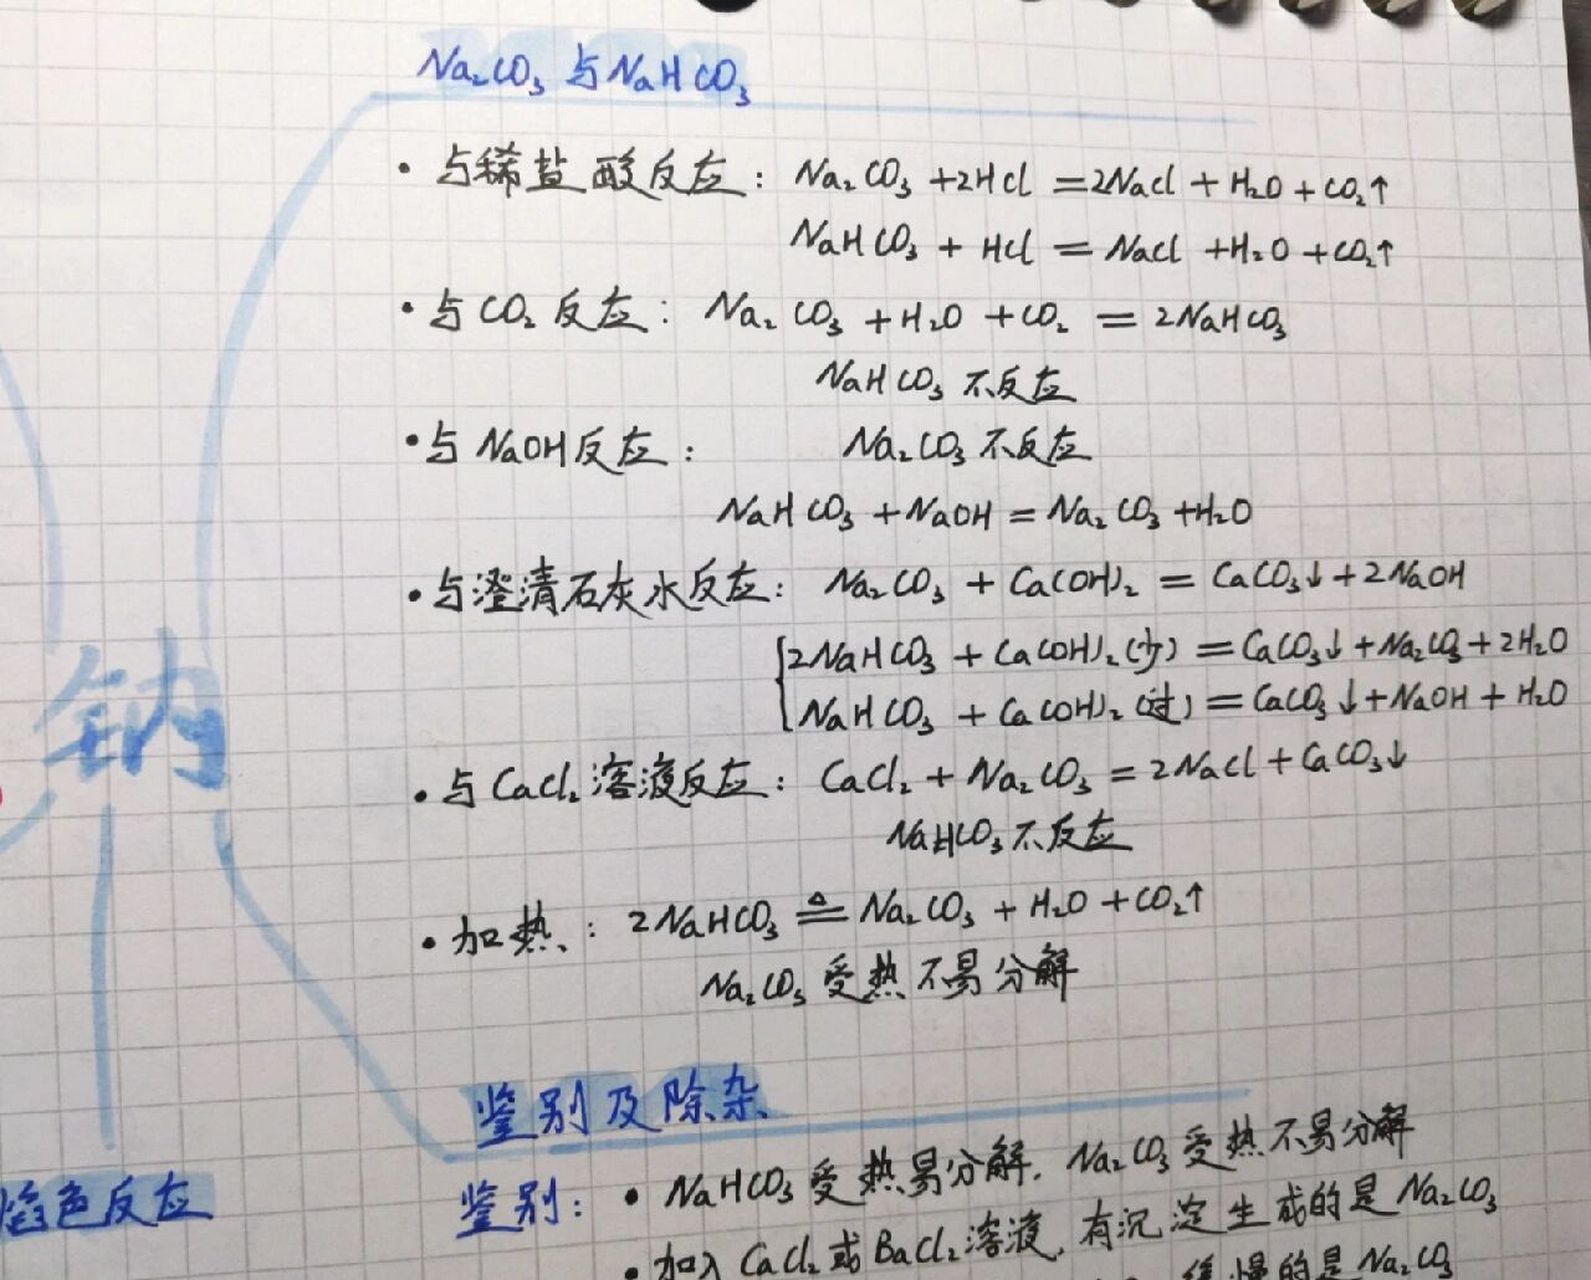 Na₂CO₃ 与 NaHCO₃
· 与稀盐酸反应: Na₂CO₃ +2HCl =2NaCl + H₂O + CO₂↑
NaHCO₃ + HCl = NaCl +H₂O +CO₂↑
· 与 CO₂ 反应: Na₂CO₃ +H₂O +CO₂ = 2NaHCO₃
NaHCO₃ 不反应
· 与 NaOH 反应: Na₂CO₃ 不反应
NaHCO₃ +NaOH = Na₂CO₃ +H₂O
· 与澄清石灰水反应: Na₂CO₃ + Ca(OH)₂ = CaCO₃↓ + 2NaOH
{2NaHCO₃ + Ca(OH)₂(少) = CaCO₃↓ +Na₂CO₃ + 2H₂O
NaHCO₃ + Ca(OH)₂(过) = CaCO₃↓+NaOH + H₂O
钠
· 与 CaCl₂ 溶液反应: CaCl₂ + Na₂CO₃ = 2NaCl + CaCO₃↓
NaHCO₃ 不反应
· 加热: 2NaHCO₃ ≜ Na₂CO₃ + H₂O + CO₂↑
Na₂CO₃ 受热不易分解
鉴别及除杂
鉴别: · NaHCO₃ 受热易分解, Na₂CO₃ 受热不易分解
焰色反应
· 加入 CaCl₂ 或 BaCl₂ 溶液, 有沉淀生成的是 Na₂CO₃
慢的是 Na₂CO₃